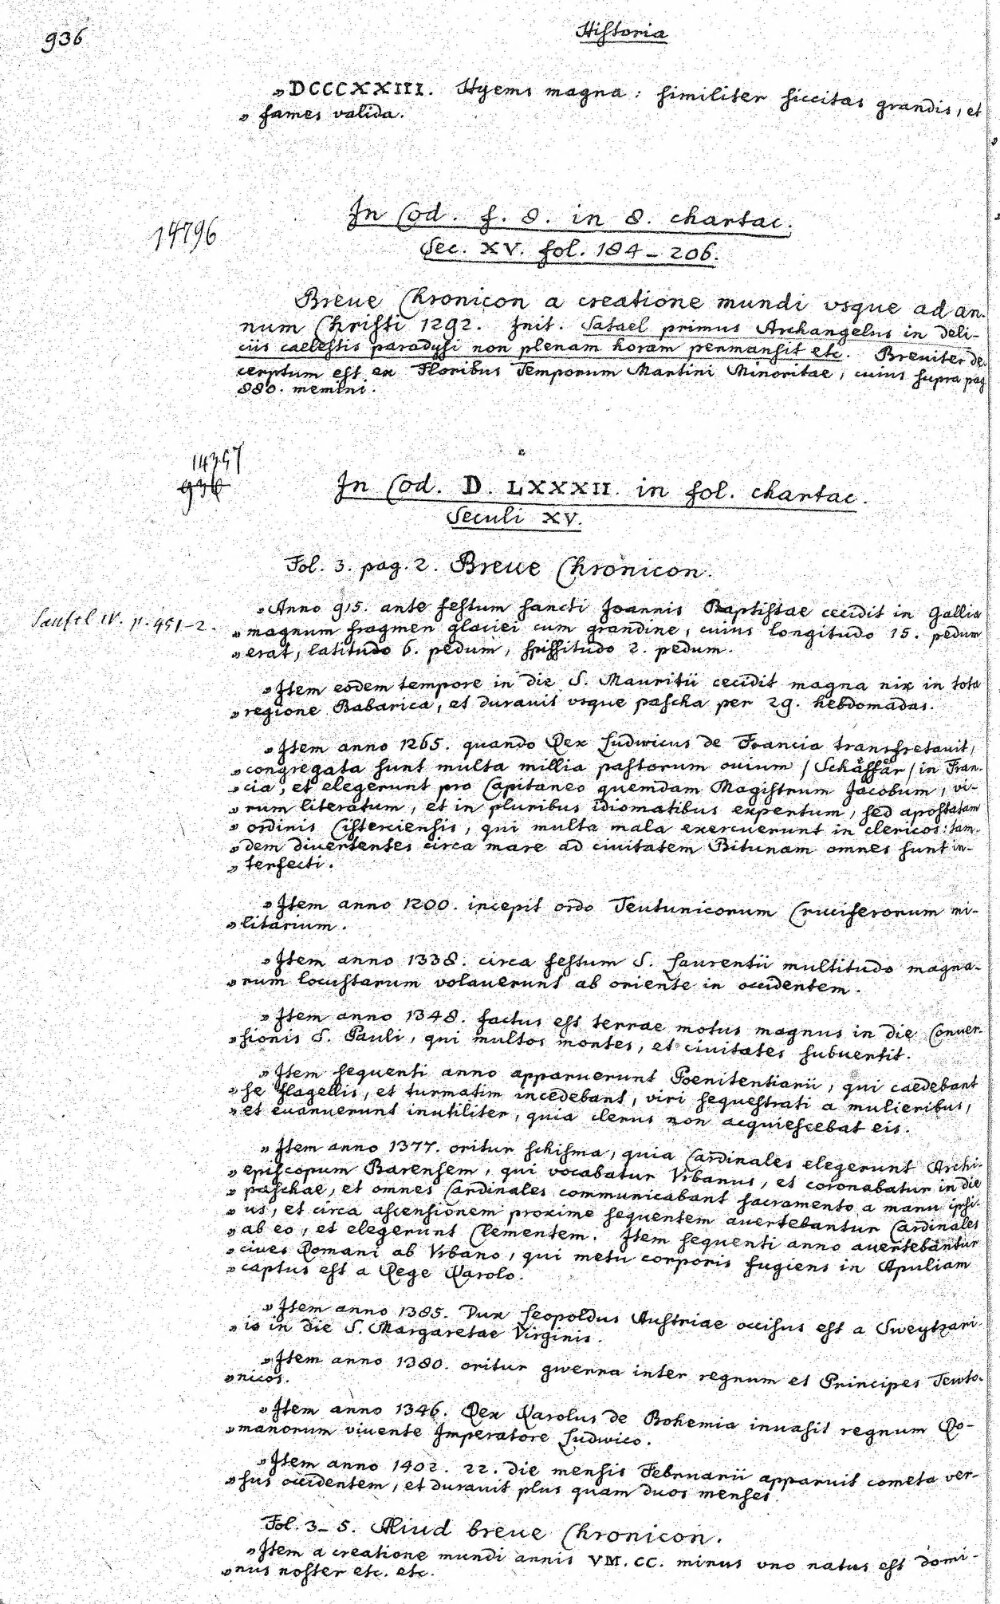 936
Historia
"DCCCXXIII. Hyems magna: similiter siccitas grandis, et
" fames valida.
14796
In Cod. f. 8. in 8. chartac.
Sec. XV. fol. 184-206.
Breue Chronicon a creatione mundi vsque ad an-
num Christi 1292. Init. Satael primus Archangelus in deli-
ciis caelestis paradysi non plenam horam permansit etc. Breuiter de-
cerptum est ex Floribus Temporum Martini Minoritae, cuius supra pag
880. memini.
14357
936
In Cod. D. LXXXII. in fol. chartac.
Seculi XV.
Fol. 3. pag. 2. Breue Chronicon.
"Anno 915. ante festum sancti Joannis Baptistae cecidit in Gallia
IV. p. 951-2.
"magnum fragmen glaciei cum grandine, cuius longitudo 15. pedum
"erat, latitudo 6. pedum, spissitudo 2. pedum.
"Item eodem tempore in die S. Mauritii cecidit magna nix in tota
"regione Babarica, et durauit vsque pascha per 29. hebdomadas.
"Item anno 1265. quando Rex Ludwicus de Francia transfretauit,
"congregata sunt multa millia pastorum ouium /Schäffär/ in Fran-
"cia, et elegerunt pro Capitaneo quemdam Magistrum Jacobum, vi-
"rum literatum, et in pluribus idiomatibus expertum, sed apostatam
"ordinis Cisterciensis, qui multa mala exercuerunt in clericos: tan-
"dem diuertentes circa mare ad ciuitatem Bitunam omnes sunt in-
"terfecti.
"Item anno 1200. incepit ordo Teutunicorum Cruciferorum mi-
"litarium.
"Item anno 1338. circa festum S. Laurentii multitudo magna-
"rum locustarum volauerunt ab oriente in occidentem.
"Item anno 1348. factus est terrae motus magnus in die Conuer-
"sionis S. Pauli, qui multos montes, et ciuitates subuertit.
"Item sequenti anno apparuerunt Poenitentiarii, qui caedebant
"se flagellis, et turmatim incedebant, viri sequestrati a mulieribus,
"et euanuerunt inutiliter, quia clerus non acquiescebat eis.
"Item anno 1377. oritur schisma, quia Cardinales elegerunt Archi-
"episcopum Barensem, qui vocabatur Vrbanus, et coronabatur in die
"paschae, et omnes Cardinales communicabant sacramento a manu ipsi-
"us, et circa ascensionem proxime sequentem auertebantur Cardinales
"ab eo, et elegerunt Clementem. Item sequenti anno auertebantur
"ciues Romani ab Vrbano, qui metu corporis fugiens in Apuliam
"captus est a Rege Karolo.
"Item anno 1385. Dux Leopoldus Austriae occisus est a Sweytzari-
"is in die S. Margaretae Virginis.
"Item anno 1380. oritur gwerra inter regnum et Principes Tewto-
"nicos.
"Item anno 1346. Rex Karolus de Bohemia inuasit regnum Ro-
"manorum viuente Imperatore Ludwico.
"Item anno 1402. 22. die mensis Februarii apparuit cometa ver-
"sus occidentem, et durauit plus quam duos menses.
Fol. 3-5. Aliud breue Chronicon.
"Item a creatione mundi annis VM. CC. minus vno natus est domi-
"nus noster etc. etc.